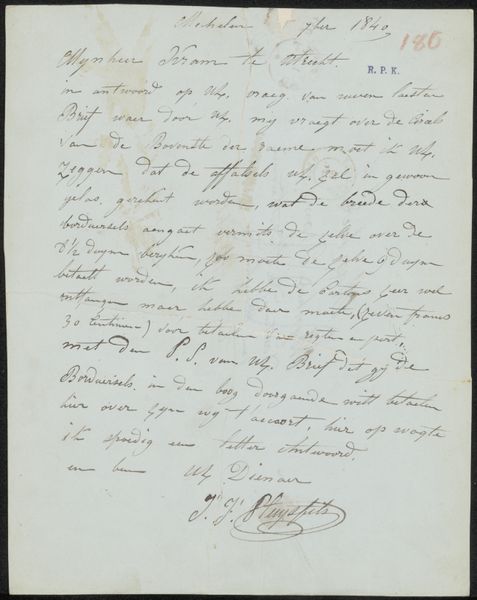 Mechelen 7ber 1840
180
R. P. K.
Mynheer Kram te Utrecht.
in antwoord op UE. vraeg van uwen laesten
Brief waer door UE. my vraegt over de
van de Bovenste der raeme moet ik UE.
zeggen dat de affalsels UE. zal in gewoon
gelas gerekent worden, wat de breede der
borduersels aengaet vermits de zelve over de
6 1/2 duym bereyken, zoo moete de zelve 6 duym
betaelt worden, ik hebbe de zeer wel
ontfangen maer hebbe daer moete (zeven francs
30 Centimen) voor betaelen van regten en port,
met den P. S. van UE. Brief dat gy de
Borduersels in den boog doorgaende wilt betaelen
hier over zyn wy t'accoort, hier op wagte
ik spoedig een letter Antwoord.
en ben UE Dienaer
J. F. Pluysfels